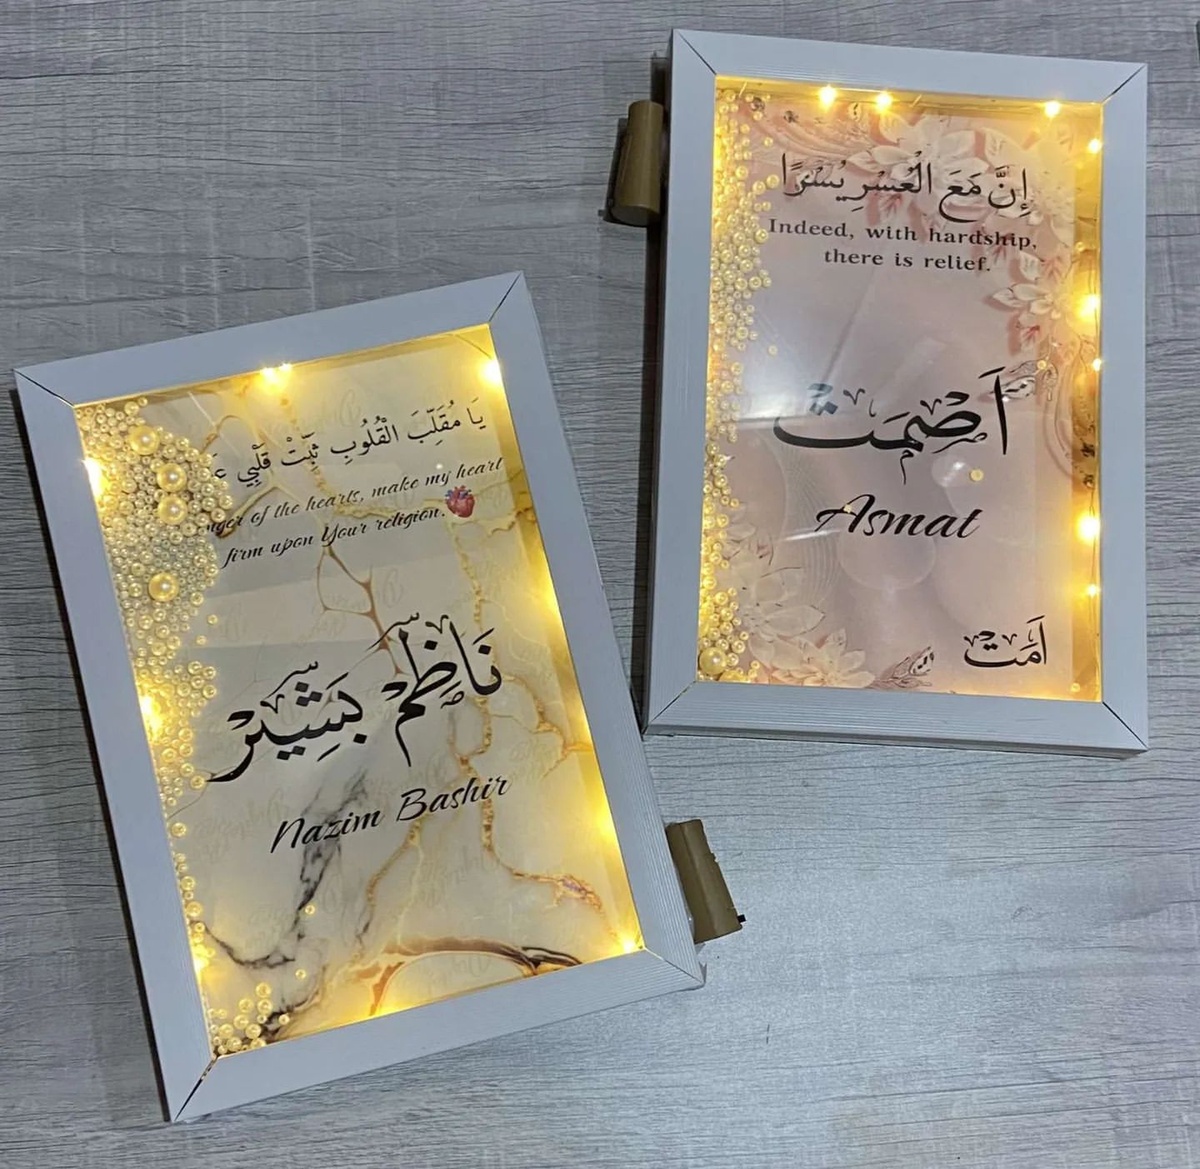 يَا مُقَلِّبَ الْقُلُوبِ ثَبِّتْ قَلْبِي
of the hearts, make my heart
firm upon Your religion.
نَاظِمْ بَشِيَر
Nazim Bashir
إِنَّ مَعَ الْعُسْرِ يُسْرًا
Indeed, with hardship,
there is relief.
اَصِمَت
Asmat
اَمَت